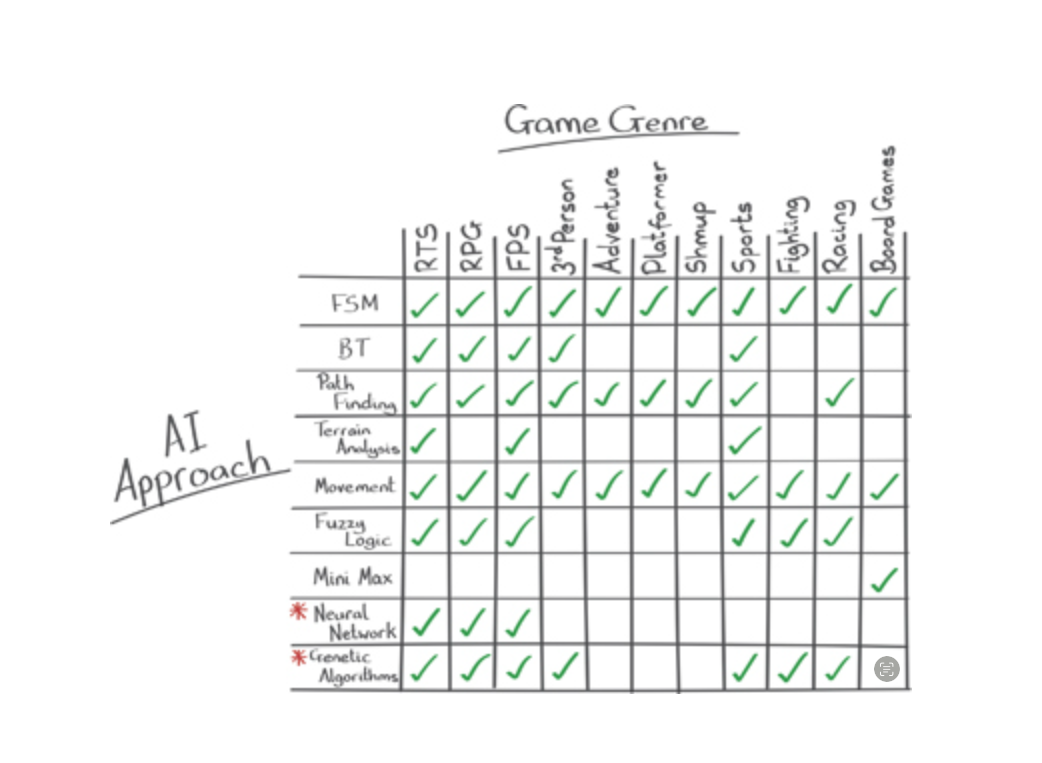 Game Genre
RTS
RPG
FPS
3rd Person
Adventure
Platformer
Shmup
Sports
Fighting
Racing
Board Games
AI
Approach
FSM
BT
Path
Finding
Terrain
Analysis
Movement
Fuzzy
Logic
Mini Max
* Neural
Network
* Genetic
Algorithms